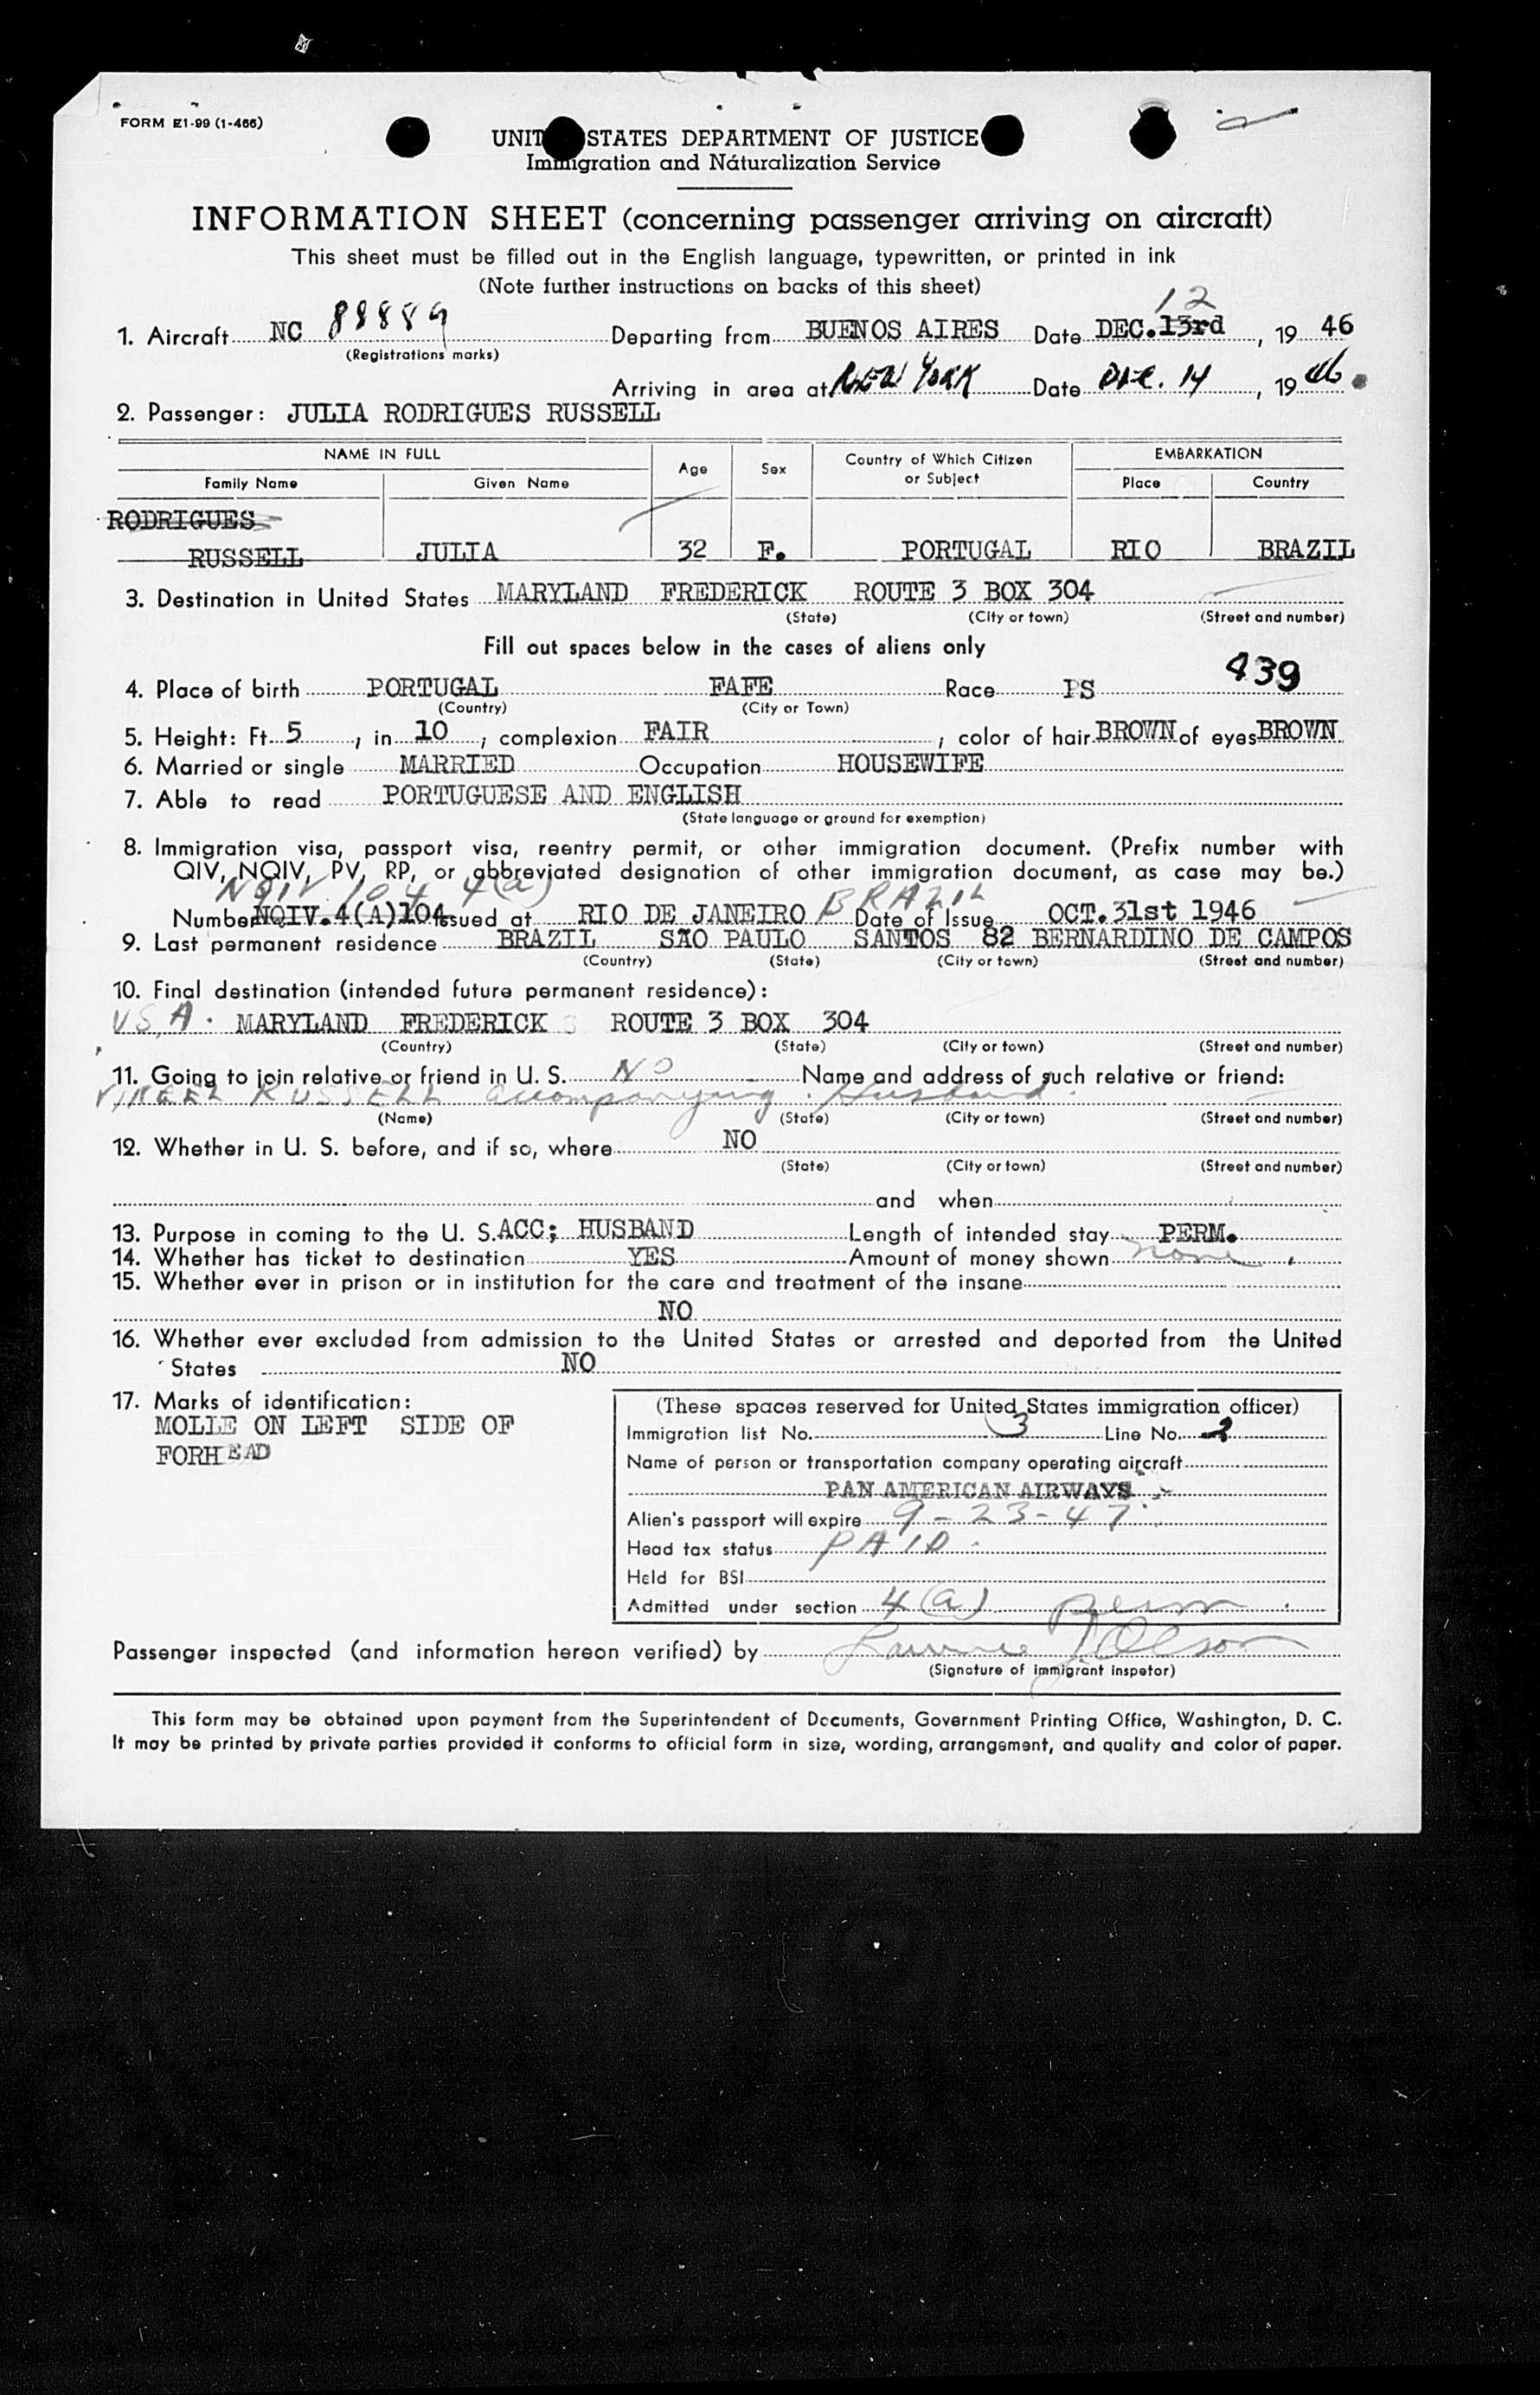 FORM E1-99 (1-466)
UNITED STATES DEPARTMENT OF JUSTICE
Immigration and Naturalization Service
INFORMATION SHEET (concerning passenger arriving on aircraft)
This sheet must be filled out in the English language, typewritten, or printed in ink
(Note further instructions on backs of this sheet)
12
1. Aircraft NC 88889 Departing from BUENOS AIRES Date DEC. 13rd, 19 46
(Registrations marks)
Arriving in area at NEW YORK Date DEC. 14, 19 46
2. Passenger: JULIA RODRIGUES RUSSELL
NAME IN FULL Age Sex Country of Which Citizen or Subject EMBARKATION
Family Name Given Name Place Country
RODRIGUES
RUSSELL JULIA 32 F. PORTUGAL RIO BRAZIL
3. Destination in United States MARYLAND FREDERICK ROUTE 3 BOX 304
(State) (City or town) (Street and number)
Fill out spaces below in the cases of aliens only
439
4. Place of birth PORTUGAL FAFE Race PS
(Country) (City or Town)
5. Height: Ft. 5, in. 10; complexion FAIR, color of hair BROWN of eyes BROWN
6. Married or single MARRIED Occupation HOUSEWIFE
7. Able to read PORTUGUESE AND ENGLISH
(State language or ground for exemption)
8. Immigration visa, passport visa, reentry permit, or other immigration document. (Prefix number with
QIV, NQIV, PV, RP, or abbreviated designation of other immigration document, as case may be.)
NQIV 104 4(a) BRAZIL
Number NQIV. 4(A)104 Issued at RIO DE JANEIRO Date of Issue OCT. 31st 1946
9. Last permanent residence BRAZIL SAO PAULO SANTOS 82 BERNARDINO DE CAMPOS
(Country) (State) (City or town) (Street and number)
10. Final destination (intended future permanent residence):
USA. MARYLAND FREDERICK ROUTE 3 BOX 304
(Country) (State) (City or town) (Street and number)
11. Going to join relative or friend in U. S. NO Name and address of such relative or friend:
RUSSELL accompanying Husband.
(Name) (State) (City or town) (Street and number)
12. Whether in U. S. before, and if so, where NO
(State) (City or town) (Street and number)
and when
13. Purpose in coming to the U. S. ACC; HUSBAND Length of intended stay PERM.
14. Whether has ticket to destination YES Amount of money shown none
15. Whether ever in prison or in institution for the care and treatment of the insane
NO
16. Whether ever excluded from admission to the United States or arrested and deported from the United
States NO
17. Marks of identification:
MOLLE ON LEFT SIDE OF
FORHEAD
(These spaces reserved for United States immigration officer)
Immigration list No. 3 Line No. 2
Name of person or transportation company operating aircraft
PAN AMERICAN AIRWAYS
Alien's passport will expire 9-23-47
Head tax status PAID.
Held for BSI
Admitted under section 4(a) perm
Passenger inspected (and information hereon verified) by J. Olson
(Signature of immigrant inspetor)
This form may be obtained upon payment from the Superintendent of Documents, Government Printing Office, Washington, D. C.
It may be printed by private parties provided it conforms to official form in size, wording, arrangement, and quality and color of paper.